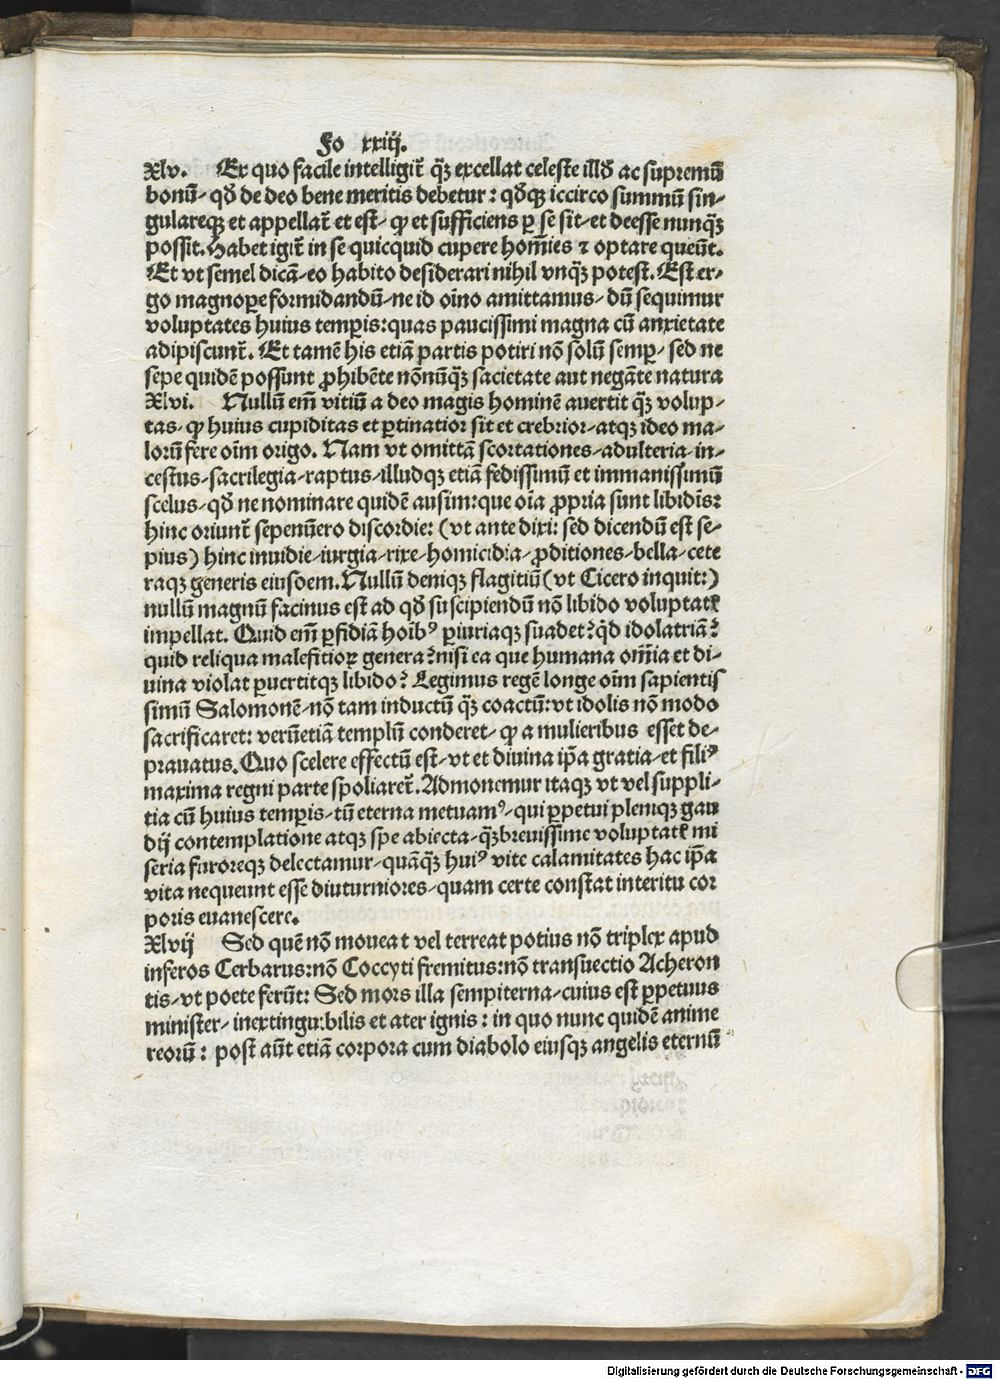 Fo xxiij.
Xlv. Ex quo facile intelligit̃ q̃ꝫ excellat celeste illđ ac supremũ
bonũ- qđ de deo bene meritis debetur: qđqꝫ iccirco summũ sin-
gulareqꝫ et appellat̃ et est- ꝙ et sufficiens ꝑ se sit-et deesse nunq̃ꝫ
possit. Habet igit̃ in se quicquid cupere hom̃ies ⁊ optare queũt.
Et vt semel dicã-eo habito desiderari nihil vnq̃ꝫ potest. Est er-
go magnoꝑe formidandũ-ne id oĩno amittamus- dũ sequimur
voluptates huius temꝑis: quas paucissimi magna cũ anxietate
adipiscunt̃. Et tamẽ his etiã partis potiri nõ solũ semꝑ- sed ne
sepe quidẽ possunt ꝓhibẽte nõnũq̃ꝫ sacietate aut negãte natura
Xlvi. Nullũ em̃ vitiũ a deo magis hominẽ auertit q̃ꝫ volup-
tas- ꝙ huius cupiditas et ꝑtinatior sit et crebrior-atqꝫ ideo ma-
lorũ fere oĩm origo. Nam vt omittã scortationes-adulteria-in-
cestus-sacrilegia-raptus-illudqꝫ etiã fedissimũ et immanissimũ
scelus-qđ ne nominare quidẽ ausim: que oĩa ꝓpria sunt libidĩs:
hinc oriunt̃ sepenũero discordie: (vt ante dixi: sed dicendũ est se-
pius) hinc inuidie-iurgia-rixe-homicidia-ꝓditiones-bella-cete
raqꝫ generis eiusdem. Nullũ deniqꝫ flagitiũ (vt Cicero inquit:)
nullũ magnũ facinus est ad qđ suscipiendũ nõ libido voluptatꝭ
impellat. Quid em̃ ꝑfidiã hoĩbꝰ ꝑiuriaqꝫ suadet? qđ idolatriã?
quid reliqua malefitioꝝ genera? nisi ea que humana om̃ia et di-
uina violat ꝑuertitqꝫ libido? Legimus regẽ longe oĩm sapientis
simũ Salomonẽ-nõ tam inductũ q̃ꝫ coactũ: vt idolis nõ modo
sacrificaret: verũetiã templũ conderet- ꝙ a mulieribus esset de-
prauatus. Quo scelere effectũ est-vt et diuina ip̃a gratia-et filiꝰ
maxima regni parte spoliaret̃. Admonemur itaqꝫ vt vel suppli-
tia cũ huius temꝑis-tũ eterna metuamꝰ-qui ꝑpetui pleniqꝫ gau
dij contemplatione atqꝫ spe abiecta-q̃ꝫbreuissime voluptatꝭ mi
seria furoreqꝫ delectamur-quãq̃ꝫ huiꝰ vite calamitates hac ip̃a
vita nequeunt esse diuturniores-quam certe constat interitu cor
poris euanescere.
Xlvij Sed quẽ nõ moueat vel terreat potius nõ triplex apud
inferos Cerbarus: nõ Coccyti fremitus: nõ transuectio Acheron
tis-vt poete ferũt: Sed mors illa sempiterna-cuius est ꝑpetuus
minister-inextinguibilis et ater ignis: in quo nunc quidẽ anime
reorũ: post aũt etiã corpora cum diabolo eiusqꝫ angelis eternũ
Digitalisierung gefördert durch die Deutsche Forschungsgemeinschaft - DFG